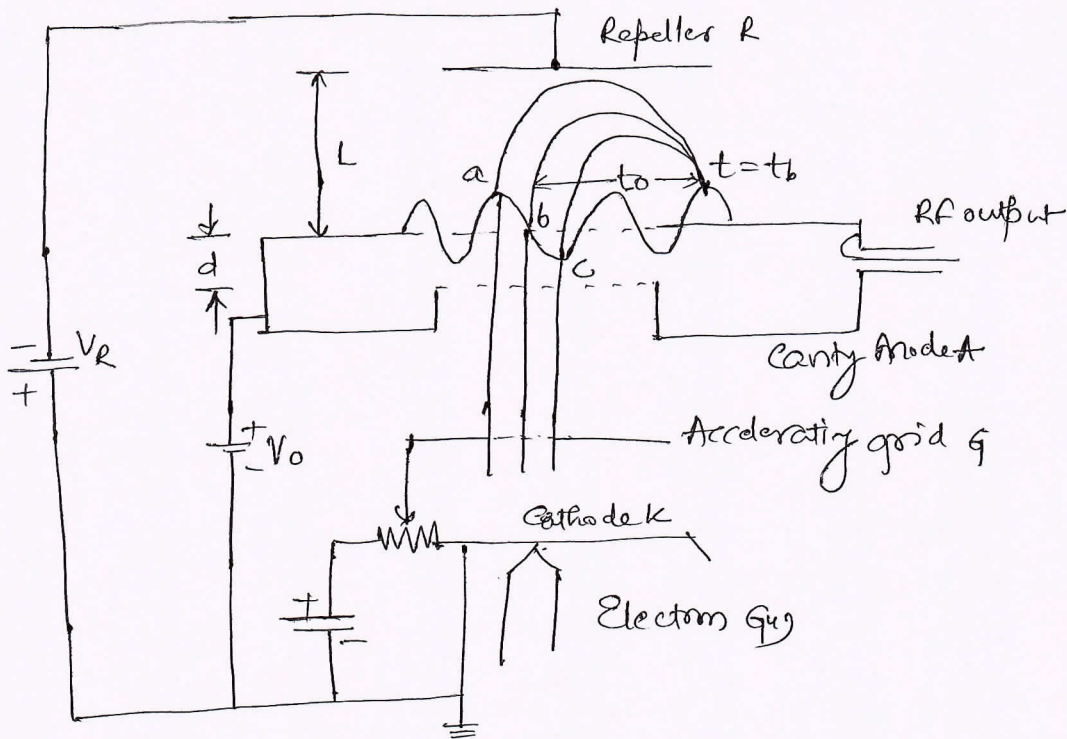 Repeller R
L
a
t0
t = tb
b
RF output
d
c
VR
Canty Anode A
V0
Accelerating grid G
Cathode K
Electron Gun